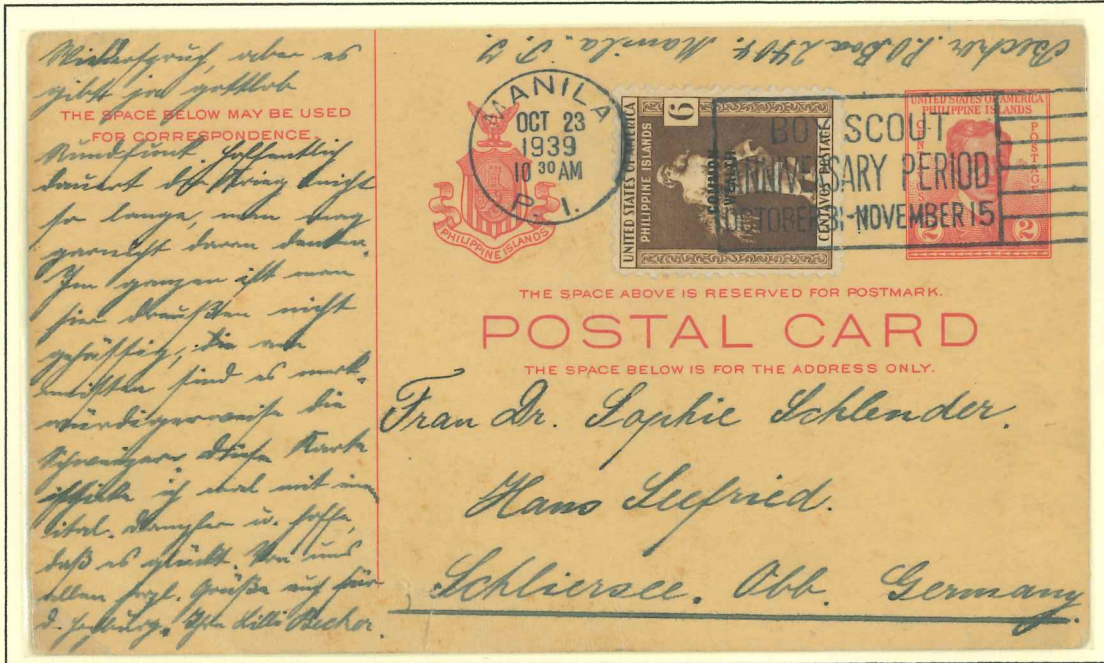 Becher P.O. Box 2404. Manila. P.I.
Widerspruch, aber es
gibt ja gottlob
THE SPACE BELOW MAY BE USED
FOR CORRESPONDENCE.
Rundfunk. Hoffentlich
dauert der Krieg nicht
so lange, man mag
garnicht daran denken.
Im ganzen ist man
hier draußen nicht
gehässig, die am
meisten sind es merk-
würdigerweise die
Schweizer. Diese Karte
schicke ich mal mit
ital. Dampfer u. hoffe,
daß es glückt. Von uns
allen hrzl. Grüße auch für
Ihre Lilli Becher.
MANILA
OCT 23
1939
10 30 AM
P. I.
PHILIPPINE ISLANDS
UNITED STATES OF AMERICA
PHILIPPINE ISLANDS
6
CENTAVOS POSTAGE
COMMON
WEALTH
BOY SCOUT
ANNIVERSARY PERIOD
OCTOBER 31-NOVEMBER 15
UNITED STATES OF AMERICA
PHILIPPINE ISLANDS
POSTAGE
2
2
THE SPACE ABOVE IS RESERVED FOR POSTMARK.
POSTAL CARD
THE SPACE BELOW IS FOR THE ADDRESS ONLY.
Frau Dr. Sophie Schlender.
Haus Seefried.
Schliersee. Obb. Germany.